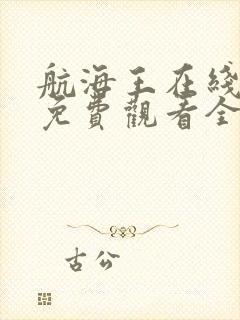 航海王在綫
免費觀看全
古公